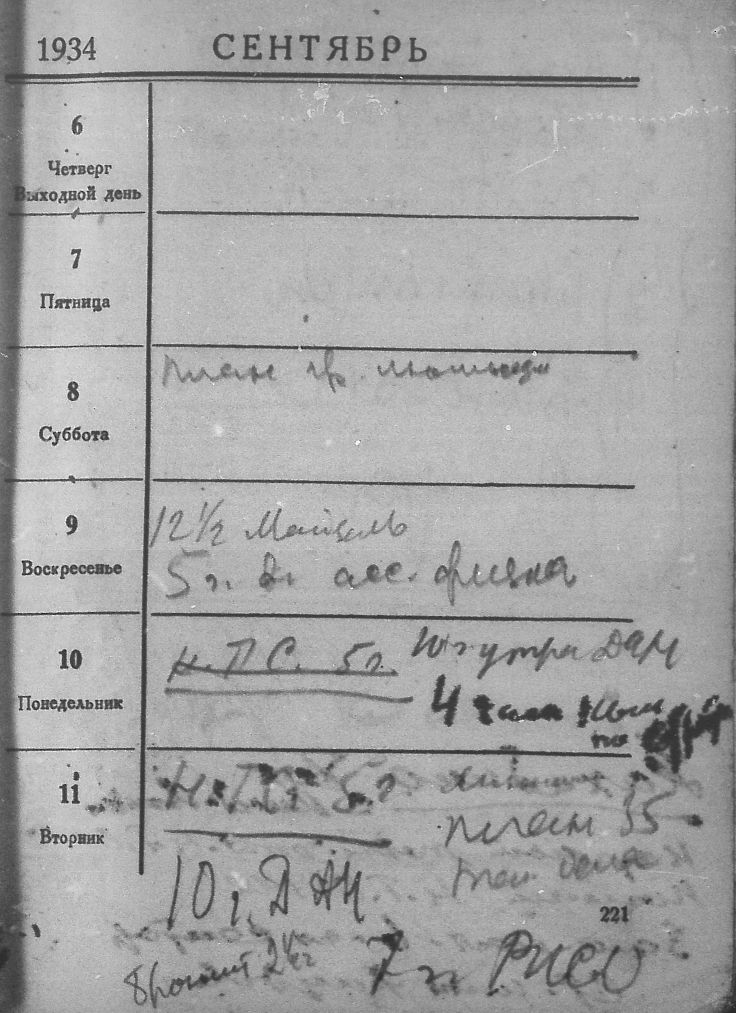 1934 СЕНТЯБРЬ
6
Четверг
Выходной день
7
Пятница
8
Суббота
план
9
Воскресенье
12 1/2
5 ч. асс. физика
10
Понедельник
Н.П.С. 5 ч.
10 ч утра ДАН
4 часа
по
11
Вторник
Н.П. 5 ч
план 35
10 ч. ДАН
221
7 ч. РИСО